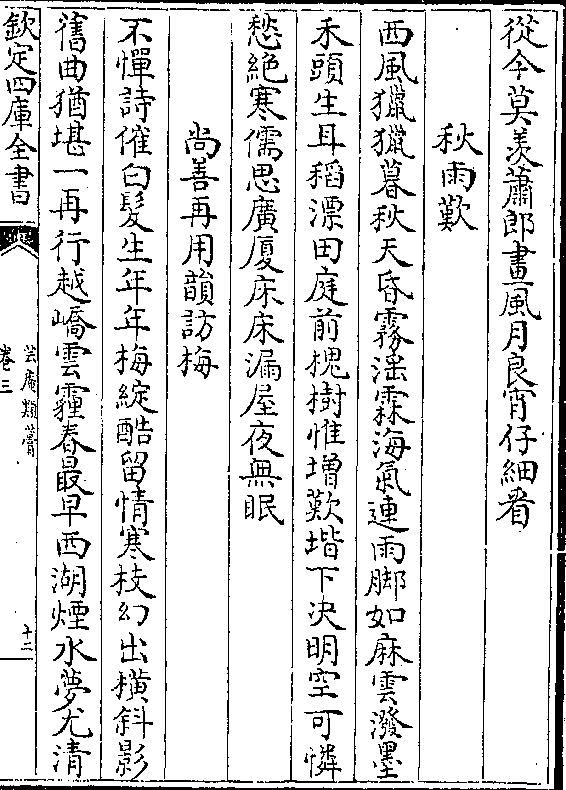 從今莫羡蕭郎畫風月良宵仔細看
秋雨歎
西風獵獵暮秋天昏霧滛霖海氣連雨脚如麻雲潑墨
禾頭生耳稻漂田庭前槐樹惟增歎堦下決明空可憐
愁絶寒儒思廣厦床床漏屋夜無眠
尚善再用韻訪梅
不憚詩催白髮生年年梅綻酷留情寒枝幻出橫斜影
舊曲猶堪一再行越嶠雲霾春最早西湖煙水夢尤清
欽定四庫全書
芸庵類藁
卷三
十二